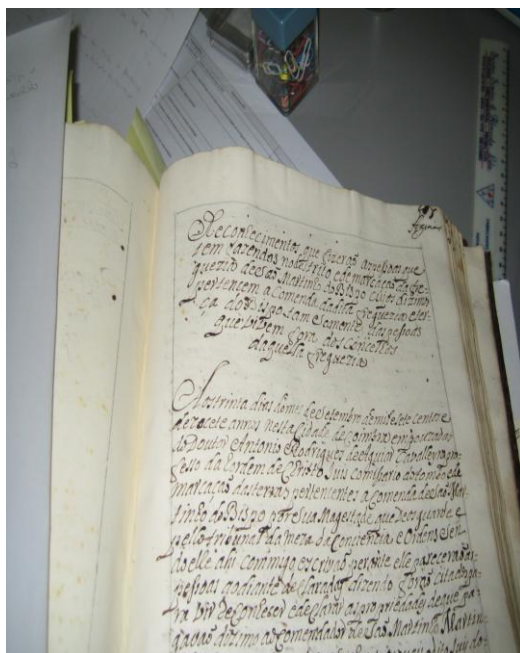 Reconhecimentos que fizeraõ as pessoas que
tem fazendas no destrito e demarcaçaõ da fre=
guezia de saõ Martinho do Bispo cujos dizimos
pertencem a Comenda da dita freguezia e ter=
ça do Bispo sam somente das pessoas
que vivem fora dos
daquella freguezia
Aos trinta dias do mes de Setembro de mil e sete centos e
dezasete annos nesta Cidade de Coimbra em pouzadas
do Doutor Antonio Rodrigues Cavalleiro pro=
fesso da hordem de Christo Juis do tombo e de
marcaçaõ das terras pertencentes a Comenda de saõ Mar
tinho do Bispo por Sua Magestade que Deos guarde e
pello tribunal da Meza da Conciencia e Ordens Sen
do elle ahi commigo escrivaõ perante elle pareceraõ as
pessoas ao diante declaradas dizendo foraõ citadas pa=
ra vir Confesar e declarar as propriedades de que pa=
gavaõ dizimo ao Comendador de saõ Martinho Martim